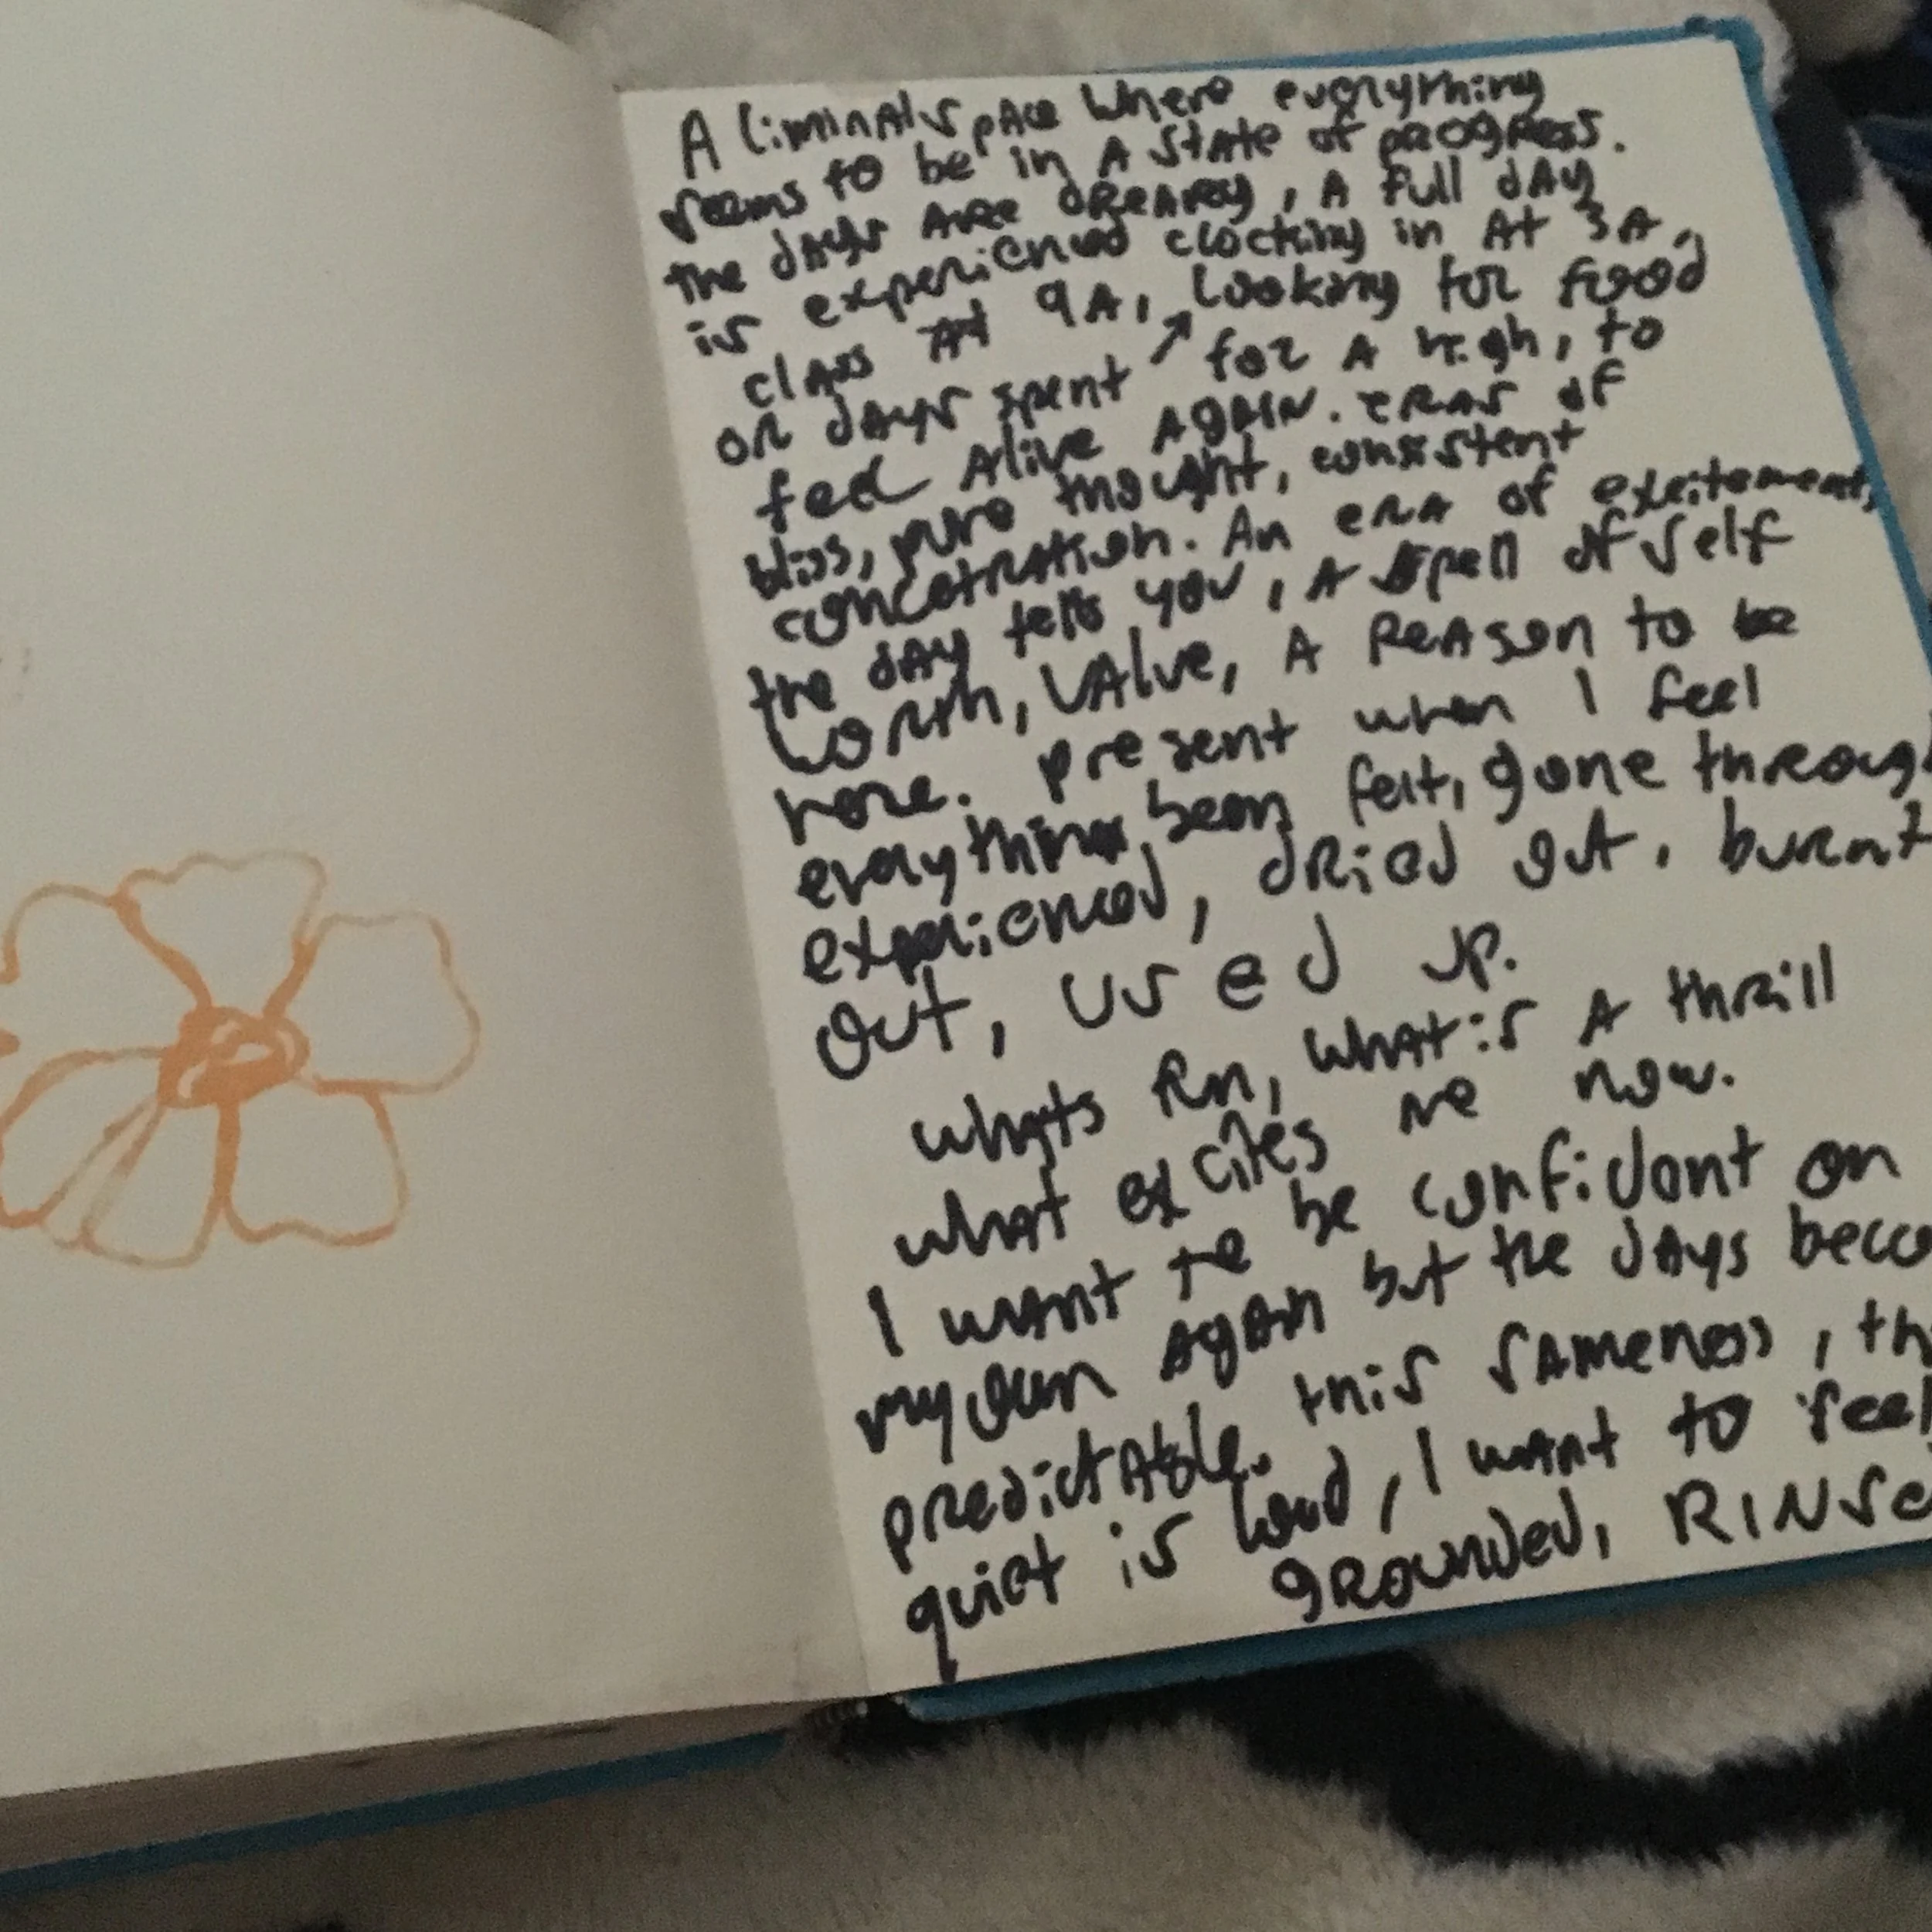 A liminal space where everything
seems to be in A state of progress.
the days are dreary, A full day
is experienced clocking in At 3A,
class At 9A, looking for food
or days spent ↗ for A high, to
feel Alive Again. eras of
bliss, pure thought, consistent
concentration. An era of excitement,
the day tells you, A spell of self
worth, value, A Reason to be
here. present when I feel
everythings been felt, gone through
experienced, dried out, burnt
out, used up.
whats fun, what is A thrill
what excites me now.
I want to be confident on
my own again but the days beco
predictable. this sameness, th
quiet is loud, I want to feel
grounded, RINSe